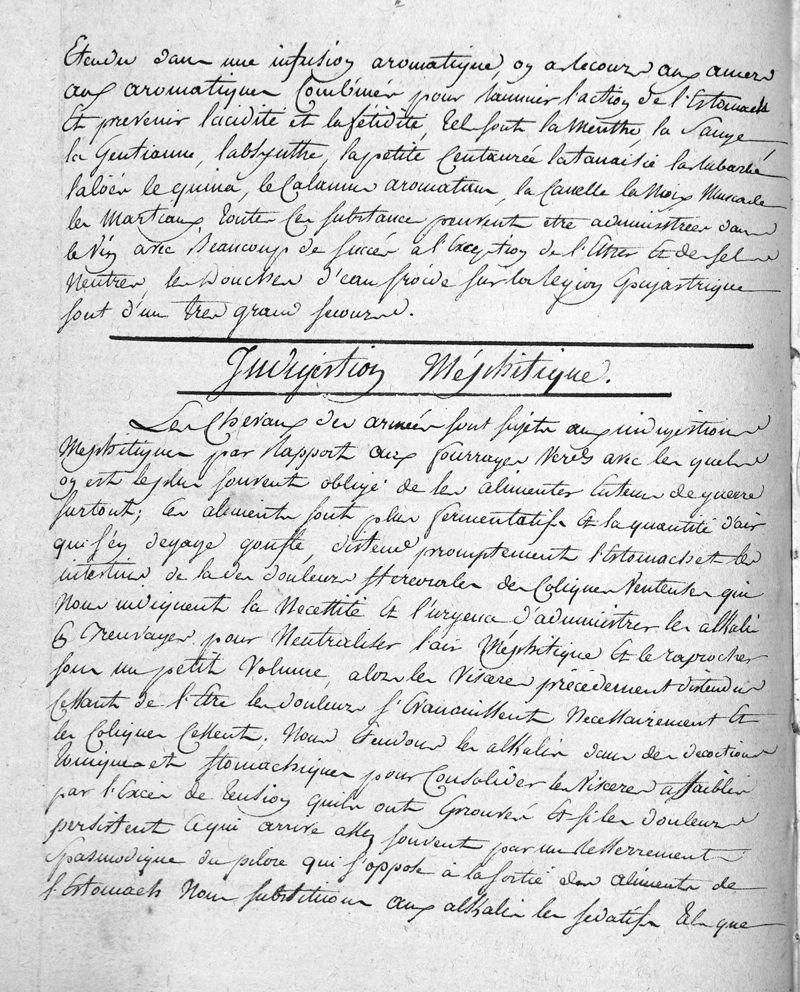 Etendu dans une infusion aromatique on a recours aux amers
aux aromatiques Combinés pour ranimer l'action de l'Estomach
Et prévenir l'acidité et la fétidité, tels sont la Menthe, la Sauge
la Gentianne, l'absynthe, la petite Centaurée la tanaisie la rubarbe
l'aloës le quina, le Calamus aromatum, la Canelle la Noix Muscade
les Martiaux toutes ces substances peuvent etre administrées dans
le Vin avec Beaucoup de succès a l'Exception de l'Ether Et des sels
Neutres, les Douches d'eau froide sur la region Epigastrique
sont d'un tres grand secours.
Indigestion Méphitique.
Les Chevaux des armées sont sujets aux indigestions
Méphitiques par rapport aux fourrages Verts avec les quels
on est le plus souvent obligé de les alimenter En tems de guerre
surtout; ces aliments sont plus fermentatifs Et la quantité d'air
qui s'en degage gonfle, distend promptement l'Estomach et les
intestins de la des douleurs des Coliques Venteuses qui
Nous indiquent la Necessité Et l'urgence d'administrer les alkali
pour Neutraliser l'air Méphitique Et le raprocher
sous un petit Volume, alors les Viscères précédement distendus
Cessant de l'Etre les douleurs s'Evanouissent Necessairement Et
les Coliques Cessent. Nous Etendons les alkalis dans des decoctions
toniques et stomachiques pour Consolider les Viscères affaiblis
par l'Excès de tension qu'ils ont Eprouvés Et si les douleurs
persistent ce qui arrive assez souvent par un resserrement
spasmodique du pilore qui s'oppose à la sortie des aliments de
l'Estomach Nous substituons aux alkalis les sedatifs tels que